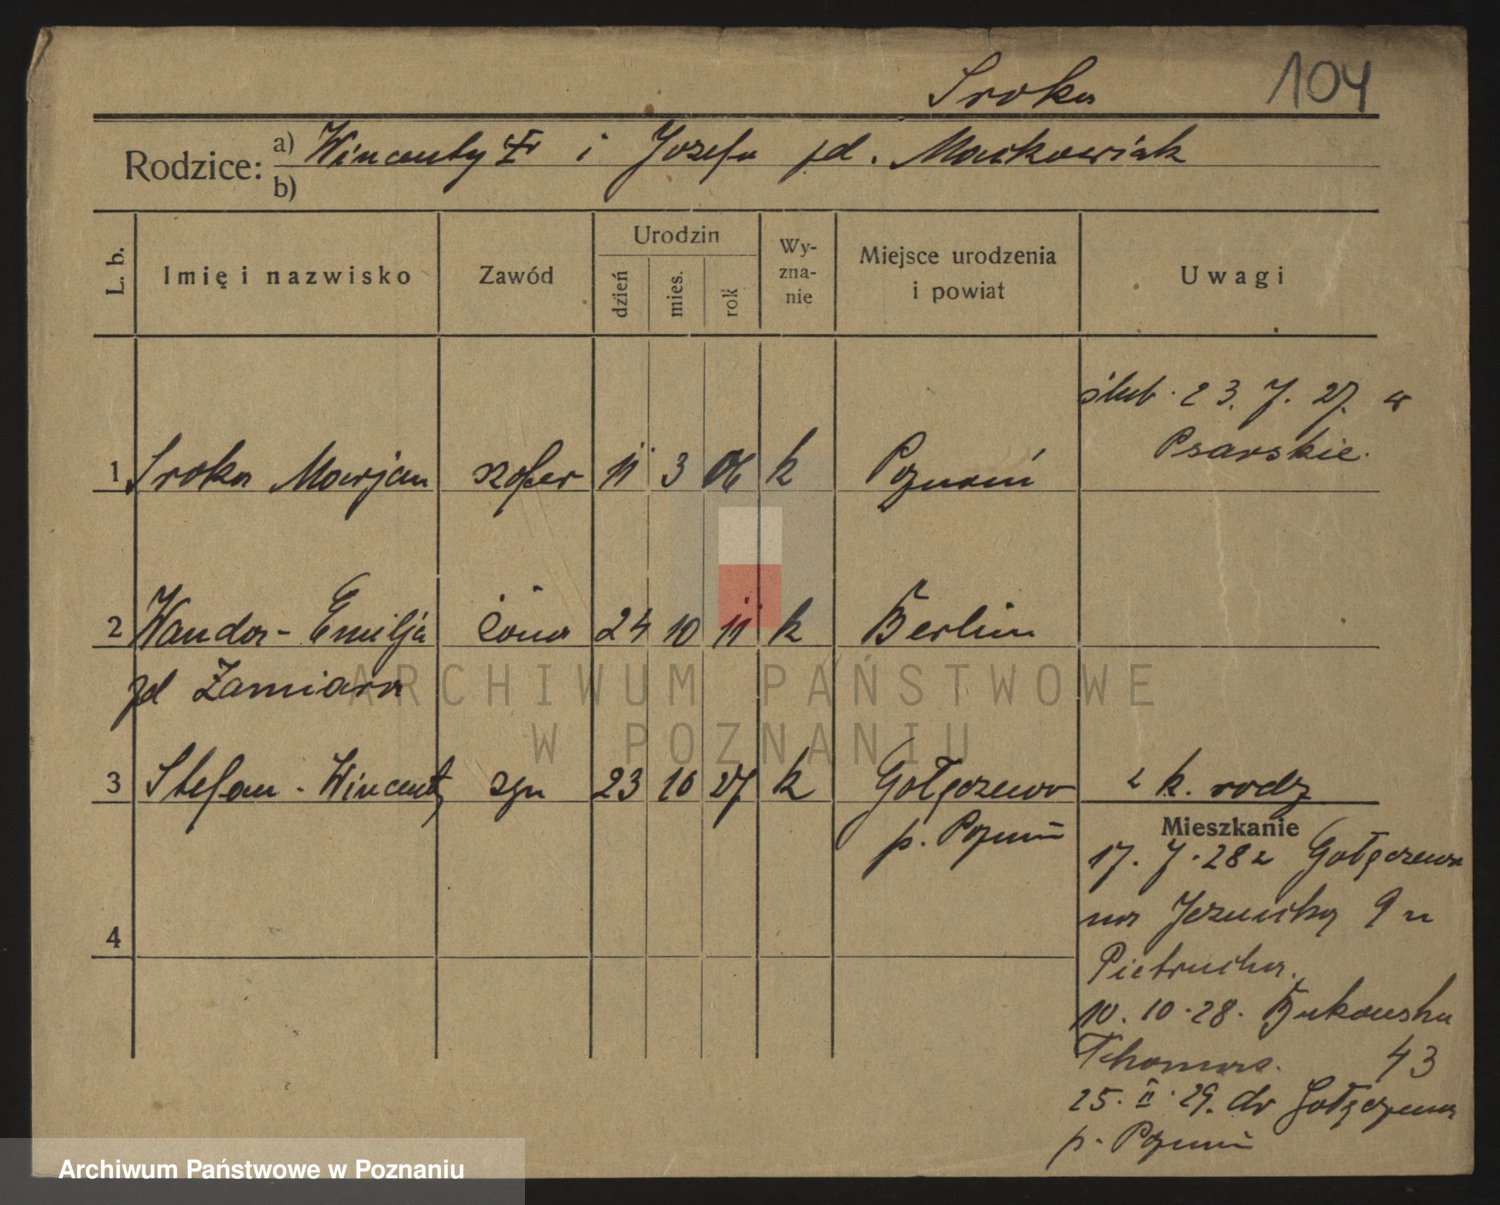 Sroka 104
Rodzice: a) Wincenty i Józefa zd. Maćkowiak
b)
L. b. Imię i nazwisko Zawód Urodzin dzień mies. rok Wy-zna-nie Miejsce urodzenia i powiat Uwagi
ślub. 23. 7. 27. w
Psarskie.
1 Sroka Marjan szofer 11 3 06 k Poznań
2 Wanda - Emilja żona 24 10 11 k Berlin
zd Zamiara
3 Stefan - Wincenty syn 23 10 27 k Gołęczewo
p. Poznań
k. rodz
Mieszkanie
17. 7. 28 z Gołęczewa
na Jezuicką 9 u
Pietrucha.
10. 10. 28. Bukowska
Thomas. 43
25. II. 29. do Gołęczewa
p. Poznań
4
ARCHIWUM PAŃSTWOWE
W POZNANIU
Archiwum Państwowe w Poznaniu